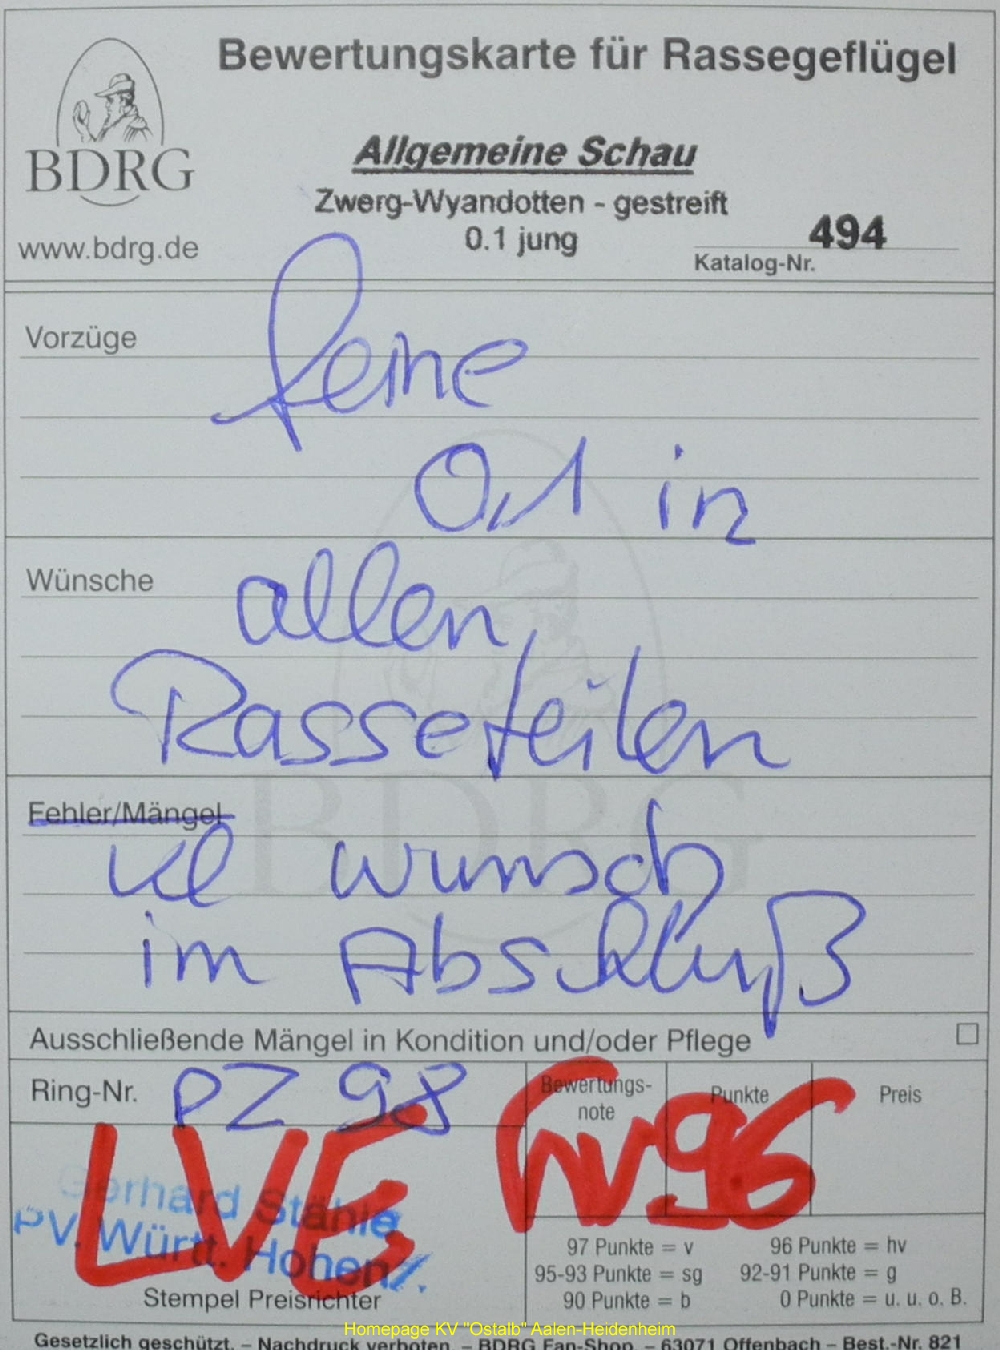 Bewertungskarte für Rassegeflügel
BDRG
www.bdrg.de
Allgemeine Schau
Zwerg-Wyandotten - gestreift
0.1 jung
494
Katalog-Nr.
Vorzüge
feine
0,1 in
Wünsche
allen
Rasseteilen
Fehler/Mängel
kl wunsch
im Abschluß
BDRG
Ausschließende Mängel in Kondition und/oder Pflege
Ring-Nr. PZ 98
Bewertungs-
note
Punkte
Preis
LVE hv 96
Gerhard Stähle
PV. Württ. Hohenz.
Stempel Preisrichter
97 Punkte = v 96 Punkte = hv
95-93 Punkte = sg 92-91 Punkte = g
90 Punkte = b 0 Punkte = u. u. o. B.
Homepage KV "Ostalb" Aalen-Heidenheim
Gesetzlich geschützt. – Nachdruck verboten – BDRG Fan-Shop – 63071 Offenbach – Best.-Nr. 821